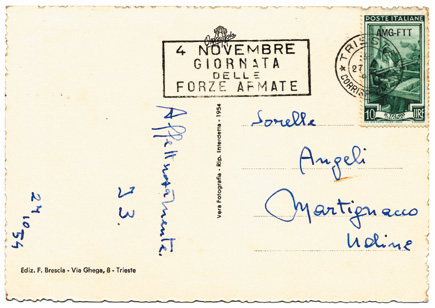 4 NOVEMBRE
GIORNATA
DELLE
FORZE ARMATE
TRIES
27
CORRIS
POSTE ITALIANE
AMG-FTT
10 LIRE
Affettuosamente.
24 10 54
Vera Fotografia - Rip. Interdetta - 1954
Sorelle
Angeli
Martignacco
Udine
Ediz. F. Brescia - Via Ghega, 8 - Trieste